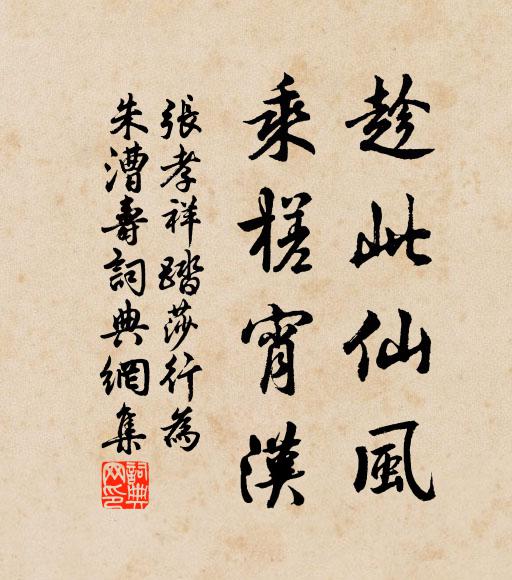 趁此仙風
乘槎宵漢
張孝祥踏莎行為
朱漕壽詞典網集
詞典网印